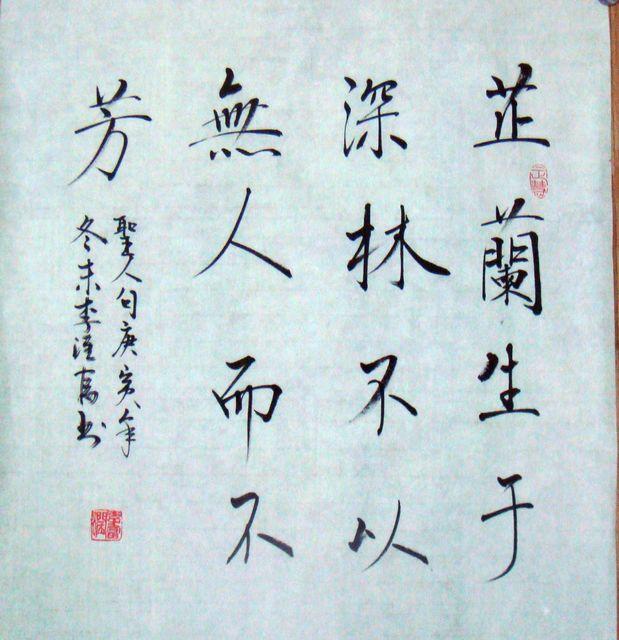 芷蘭生于
深林不以
無人而不
芳
聖人句庚寅年
冬末李書